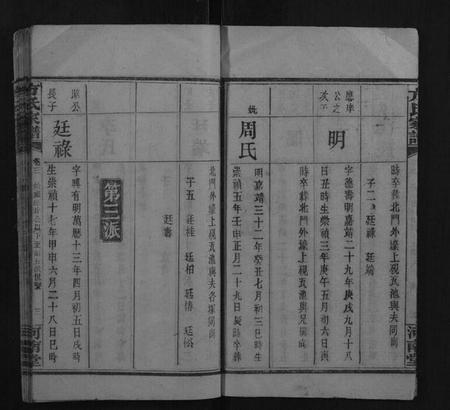 方氏家譜
時卒葬北門外壕上視瓦池與夫同向
子二 廷祿 廷瑞
應祥公之次子
明
字 壽明嘉靖二十九年庚戌九月十八
日丑時生崇禎三年庚午五月初六日
時卒葬北門外壕上視瓦池與兄同向
妣
周氏
明嘉靖三十二年癸丑七月初三巳時生
崇禎五年壬申正月二十九日 時卒葬
北門外壕上視瓦池與夫各 同向
子五 廷 廷柏 廷椿 廷松
廷壽
第三派
公長子
廷祿
字興有明萬曆十三年四月初五日戌時
生崇禎十七年甲申六月二十八日巳時
方氏家譜
卷三
三
河南堂
河南堂